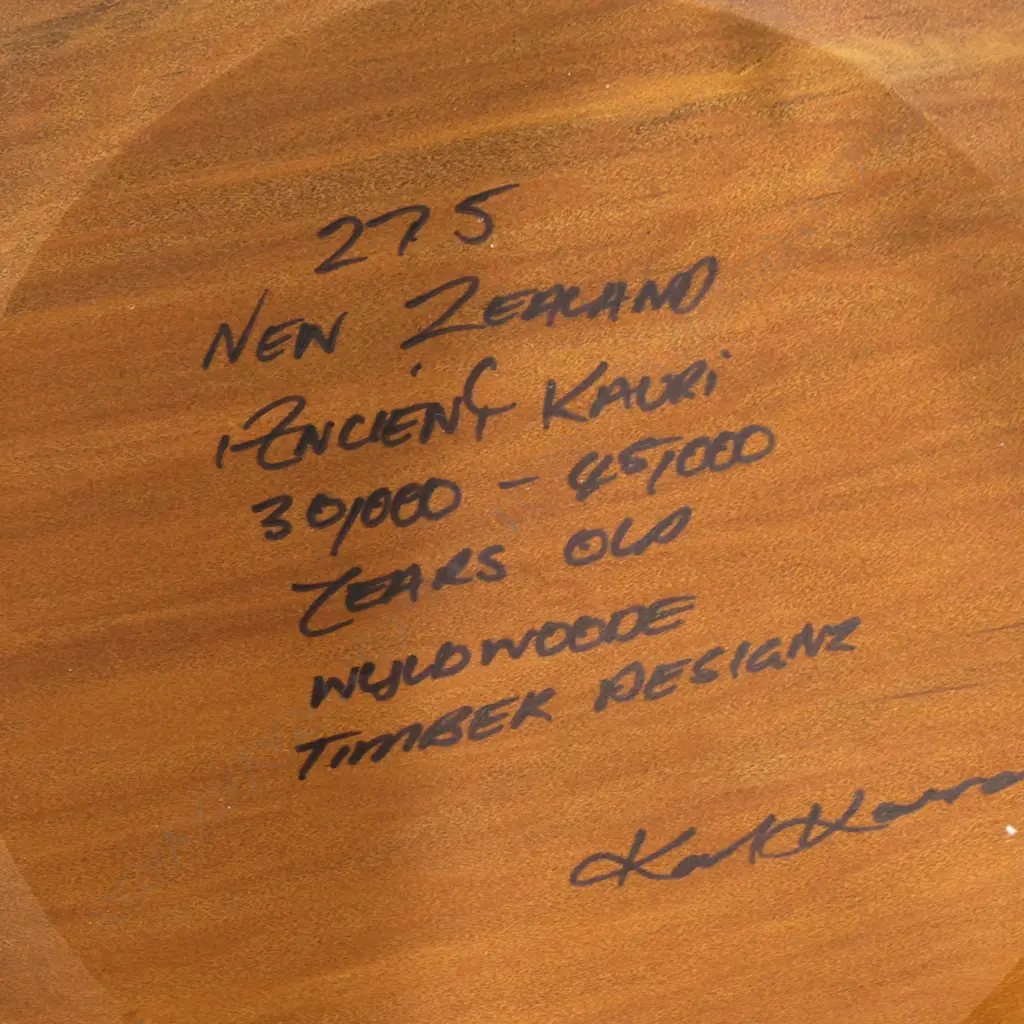 275
NEW ZEALAND
ANCIENT KAURI
30,000 - 45,000
YEARS OLD
WYLDWOODE
TIMBER DESIGNZ